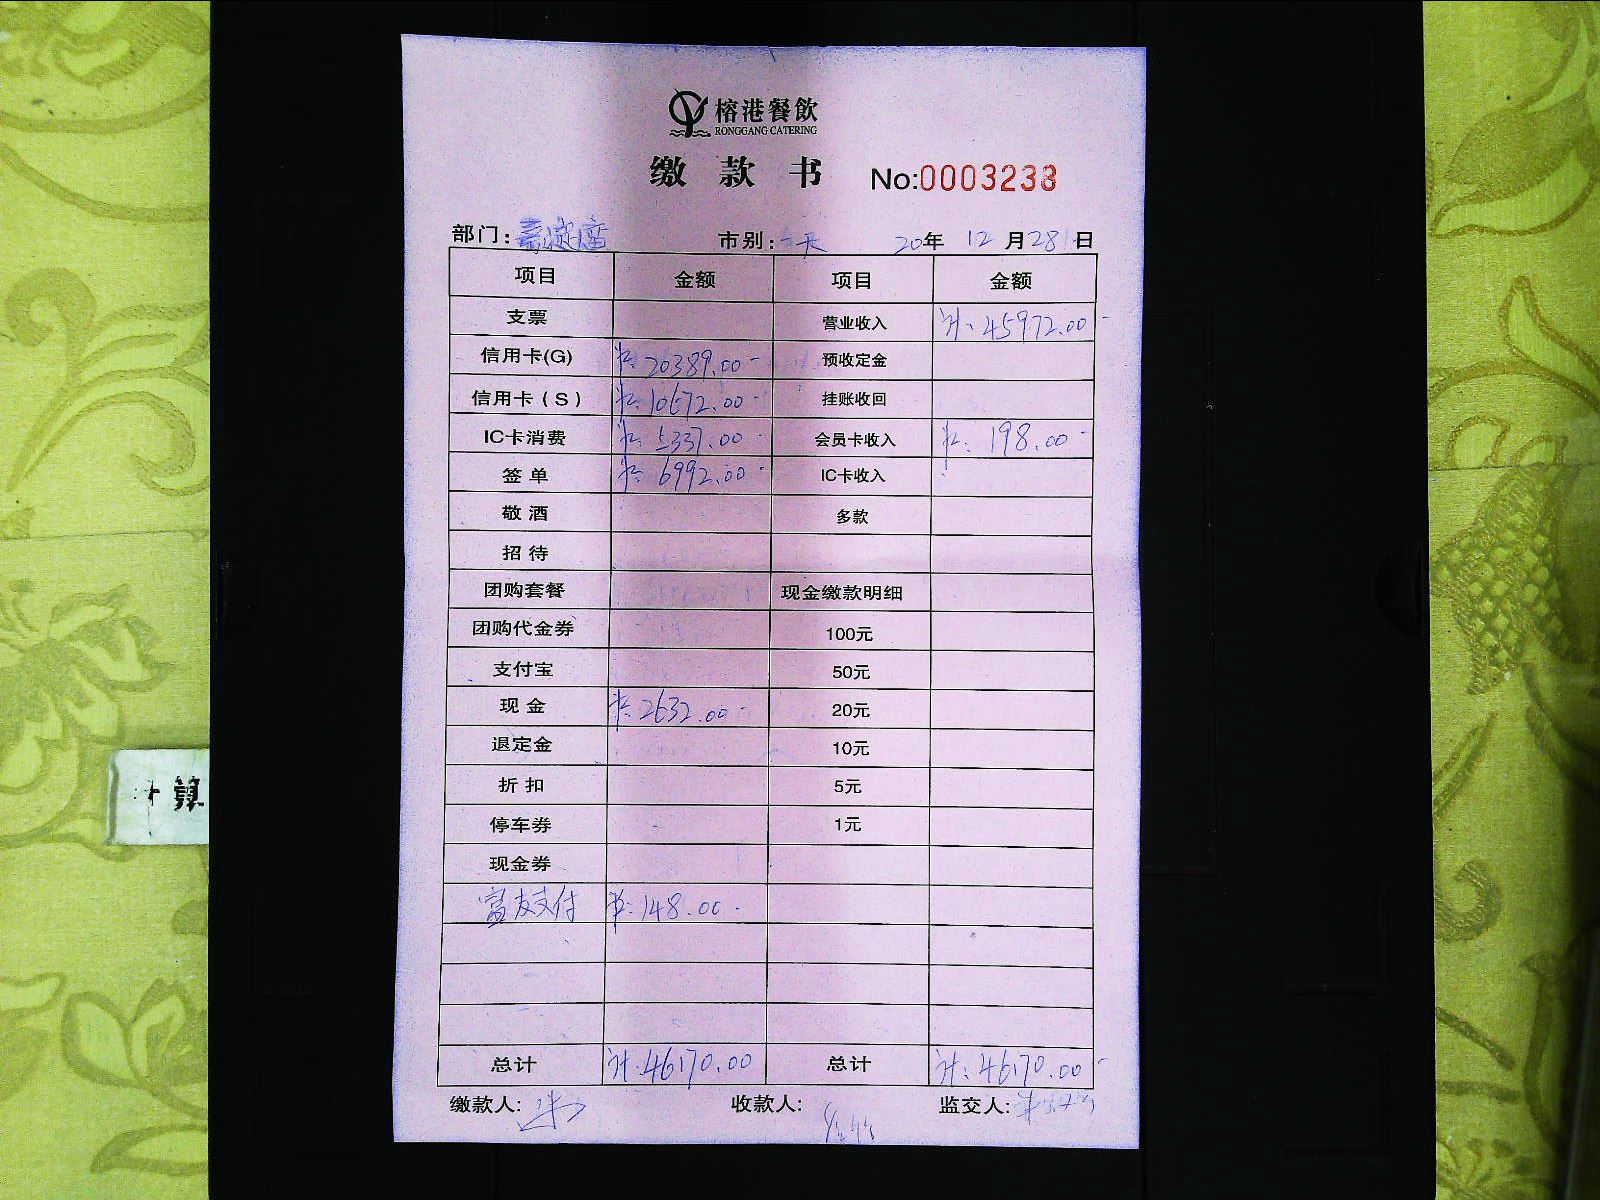 榕港餐飲
RONGGANG CATERING
缴款书 No:0003238
部门: 市别: 全天 20年 12 月 28 日
项目 金额 项目 金额
支票 营业收入 计: 45972.00
信用卡(G) 20389.00 预收定金
信用卡(S) 10672.00 挂账收回
IC卡消费 5337.00 会员卡收入 198.00
签单 6992.00 IC卡收入
敬酒 多款
招待
团购套餐 现金缴款明细
团购代金券 100元
支付宝 50元
现金 2632.00 20元
退定金 10元
折扣 5元
停车券 1元
现金券
富友支付 148.00
总计 计:46170.00 总计 计:46170.00
缴款人: 收款人: 监交人:
计算